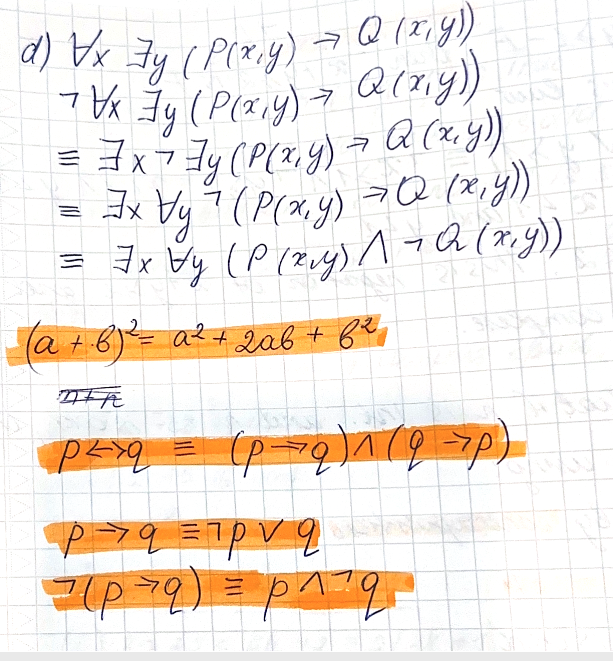 d) ∀x ∃y (P(x,y) → Q(x,y))
¬∀x ∃y (P(x,y) → Q(x,y))
≡ ∃x ¬∃y (P(x,y) → Q(x,y))
≡ ∃x ∀y ¬(P(x,y) → Q(x,y))
≡ ∃x ∀y (P(x,y) ∧ ¬Q(x,y))
(a + b)² = a² + 2ab + b²
p ↔ q ≡ (p → q) ∧ (q → p)
p → q ≡ ¬p ∨ q
¬(p → q) ≡ p ∧ ¬q